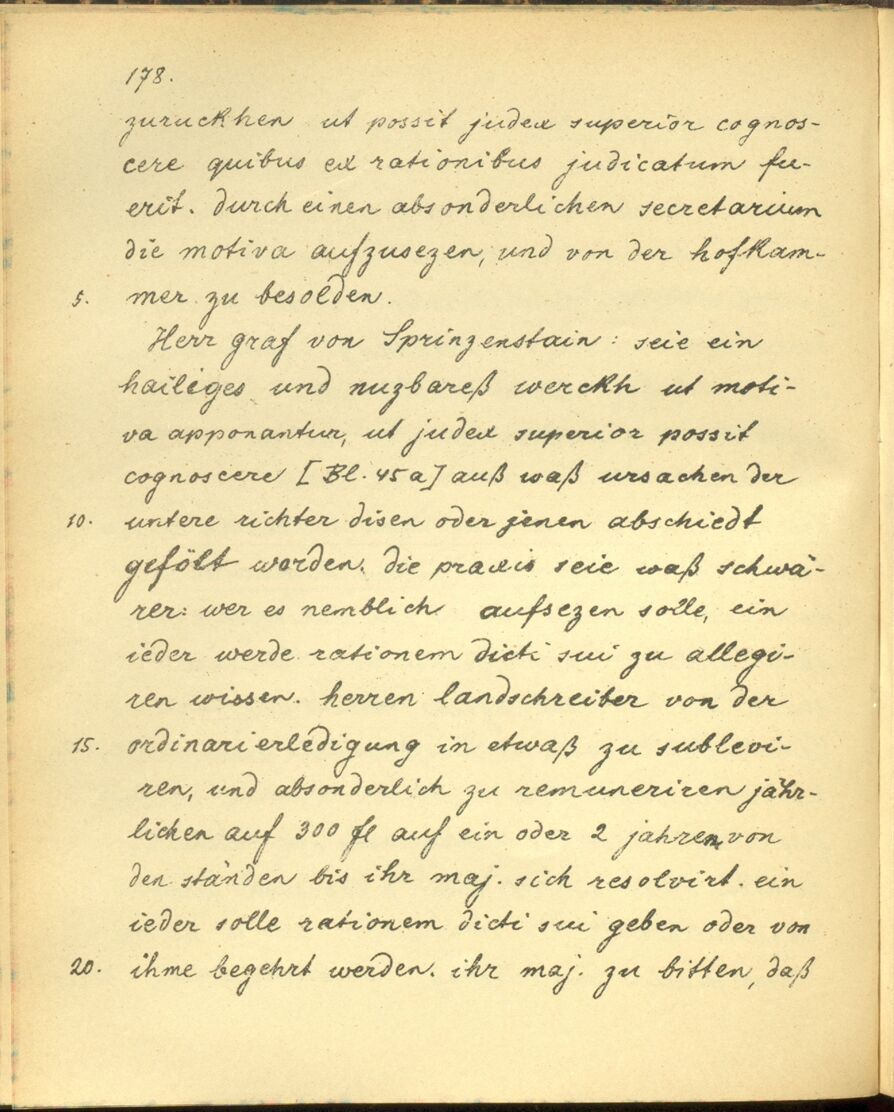 178.
zuruckhen ut possit judex superior cognos-
cere quibus ex rationibus judicatum fu-
erit. durch einen absonderlichen secretarium
die motiva aufzusezen, und von der hofkam-
5. mer zu besolden.
Herr graf von Sprinzenstain: seie ein
hailiges und nuzbareß werckh ut moti-
va apponantur, ut judex superior possit
cognoscere [Bl. 45a] auß waß ursachen der
10. untere richter disen oder jenen abschiedt
geföllt worden. die praxis seie waß schwä-
rer: wer es nemblich aufsezen solle, ein
ieder werde rationem dicti sui zu allegi-
ren wissen. herren landschreiber von der
15. ordinari erledigung in etwaß zu sublevi-
ren, und absonderlich zu remuneriren jähr-
lichen auf 300 fl auf ein oder 2 jahren, von
den ständen bis ihr maj. sich resolvirt. ein
ieder solle rationem dicti sui geben oder von
20. ihme begehrt werden. ihr maj. zu bitten, daß